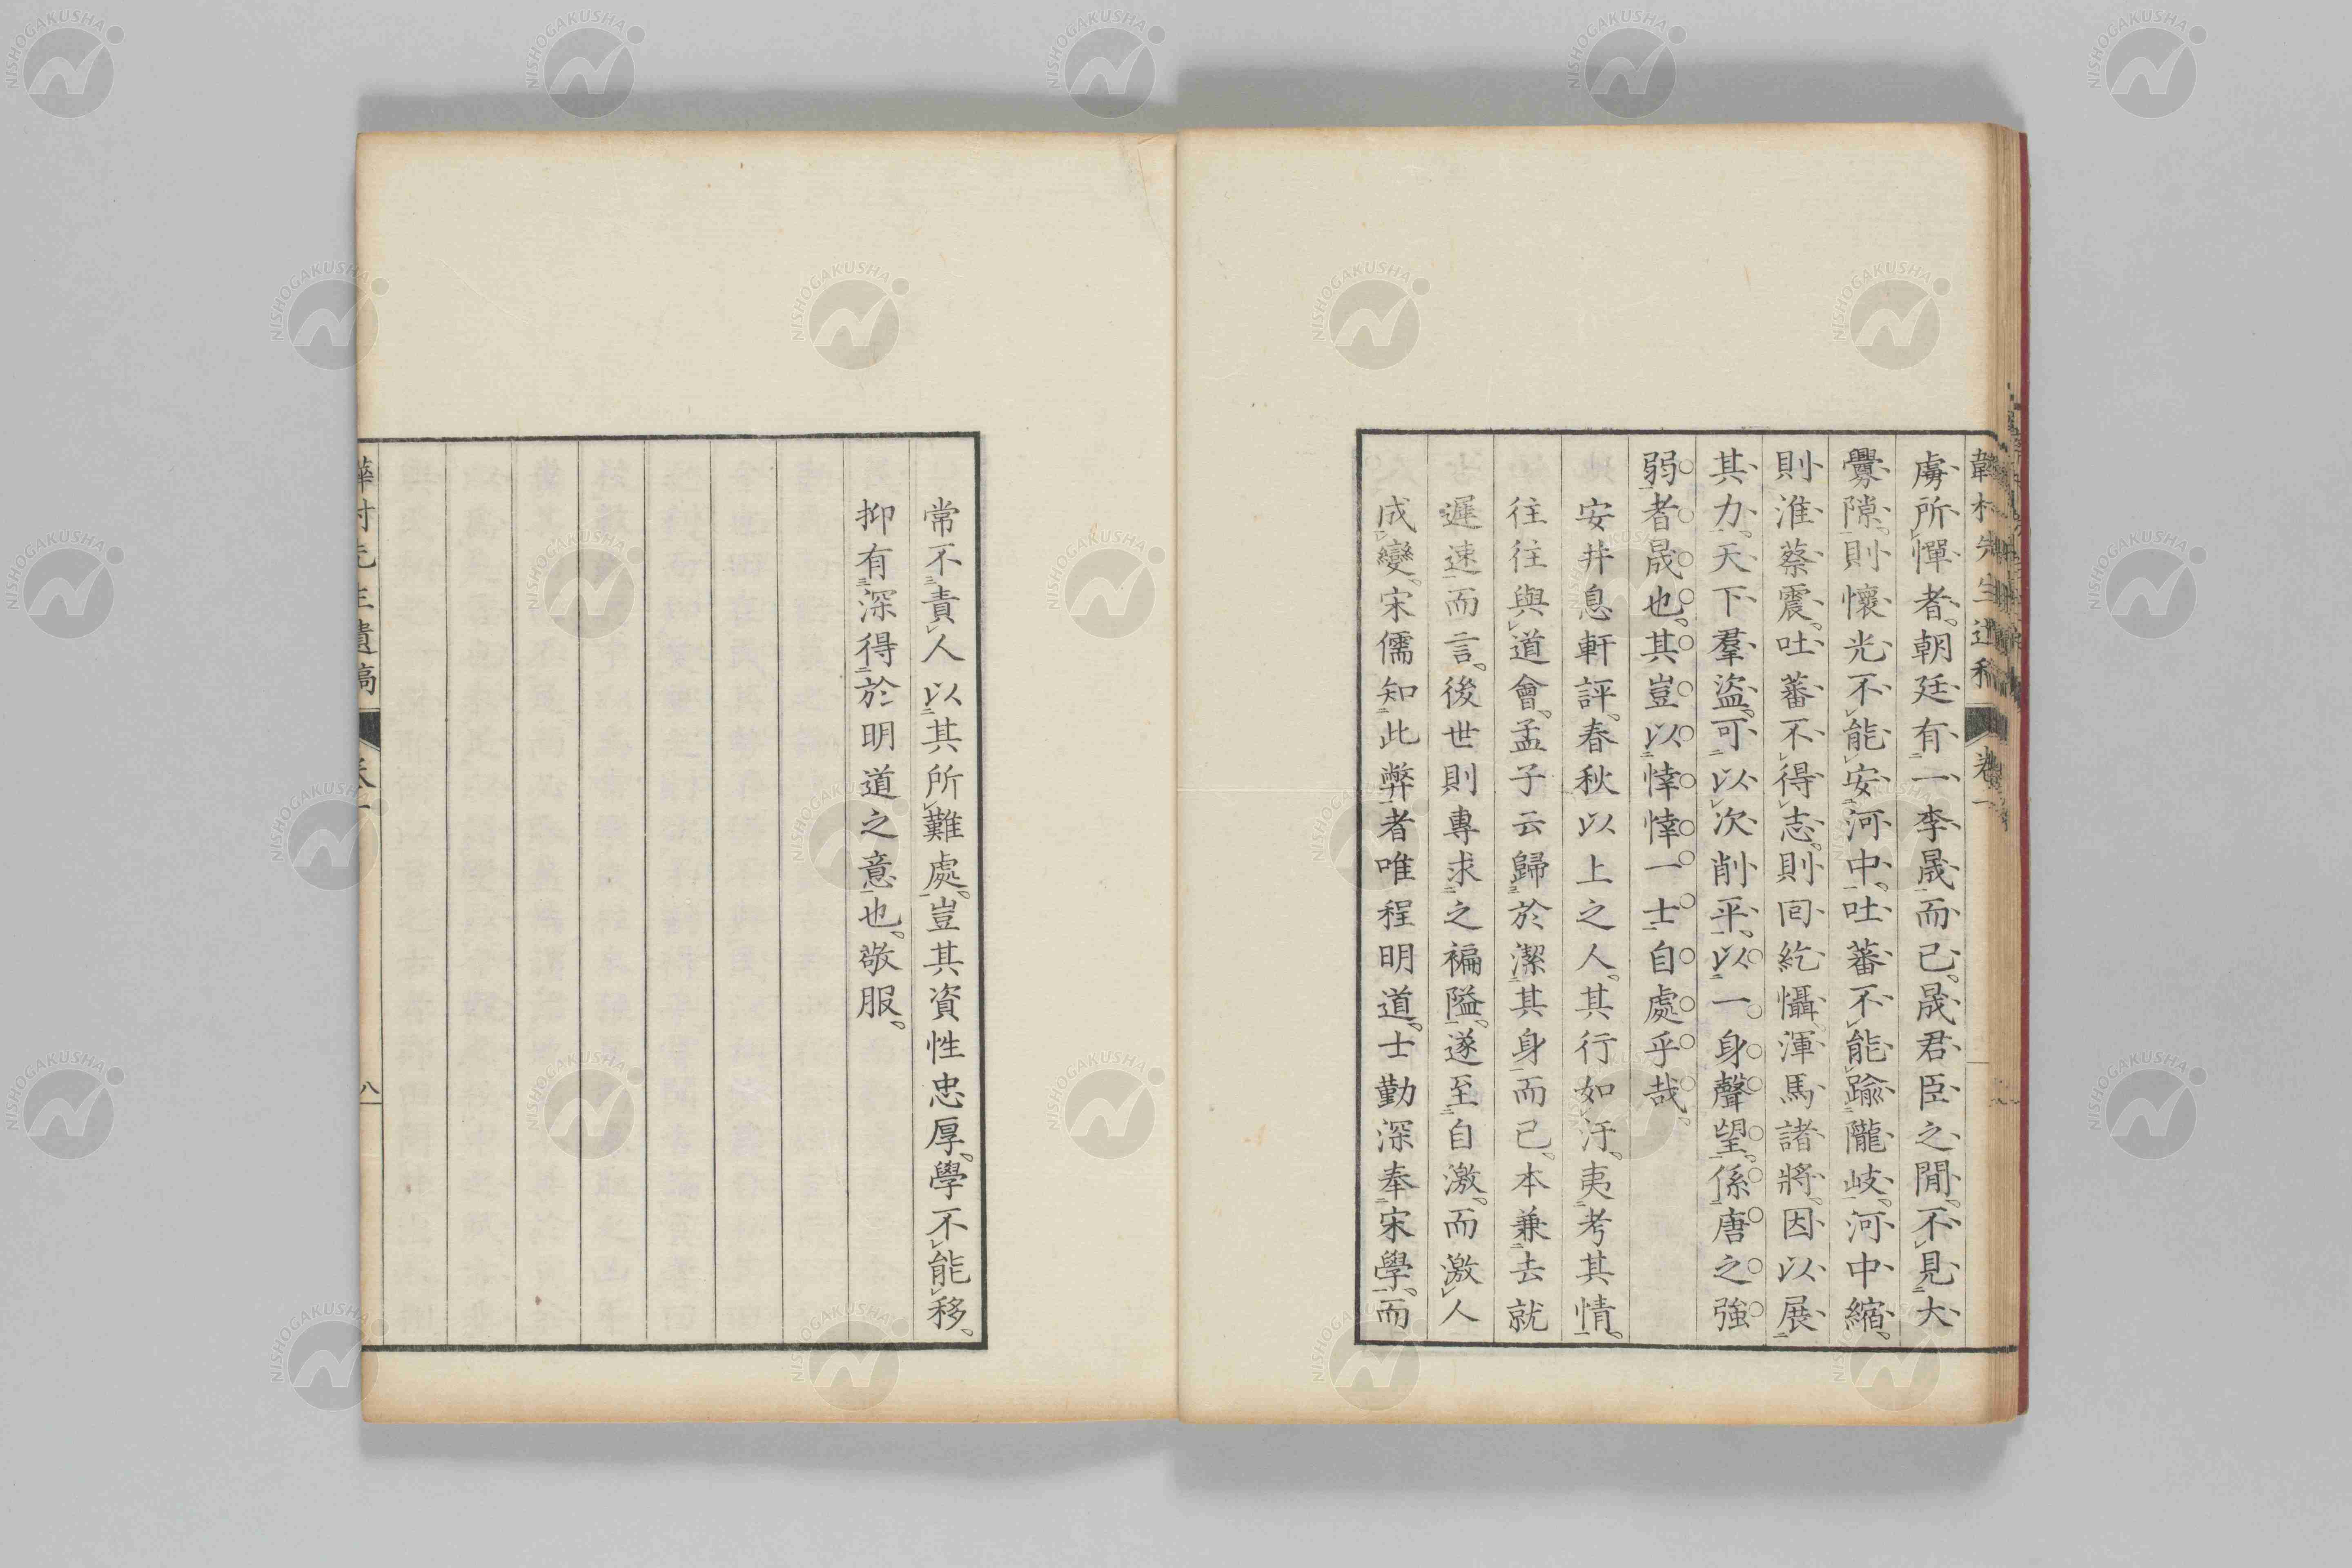 虜所憚者。朝廷有一李晟而已。晟君臣之閒。不見大
釁隙。則懷光不能安河中。吐蕃不能踰隴岐。河中縮。
則淮蔡震。吐蕃不得志。則囘紇懾。渾馬諸將。因以展
其力。天下羣盜。可以次削平。以一身聲望。係唐之強
弱者晟也。其豈以悻悻一士自處乎哉。
安井息軒評。春秋以上之人。其行如汙。夷考其情。
往往與道會。孟子云歸於潔其身而已。本兼去就
遲速而言。後世則專求之褊隘。遂至自激。而激人
成變。宋儒知此弊者唯程明道。士勤深奉宋學。而
常不責人以其所難處。豈其資性忠厚。學不能移。
抑有深得於明道之意也。敬服。
韡村先生遺稿 卷一
八
NISHOGAKUSHA